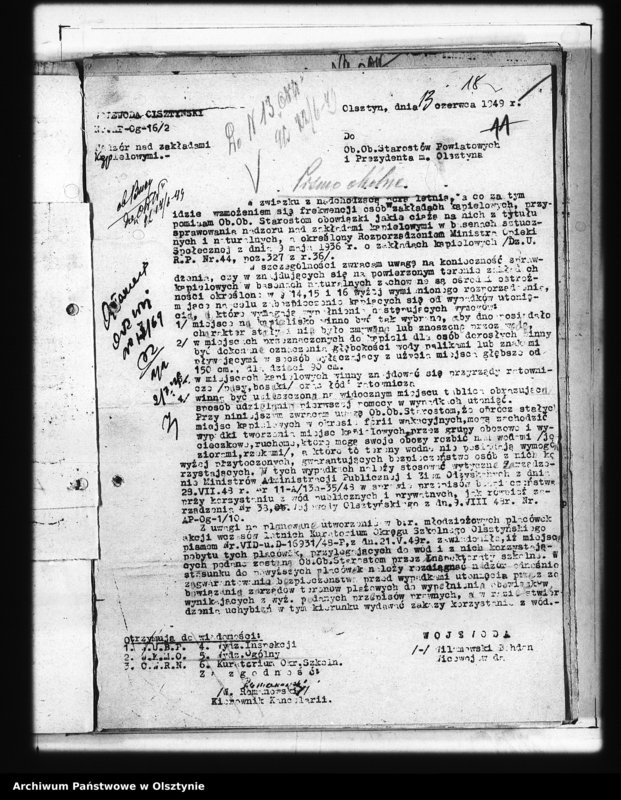 18
Olsztyn, dnia 13 czerwca 1949 r.
WOJEWODA OLSZTYŃSKI
AP-Og-16/2
Nadzór nad zakładami
kąpielowymi.-
Do
Ob.Ob.Starostów Powiatowych
i Prezydenta m. Olsztyna
Pismo okólne.
W związku z nadchodzącą porą letnią, a co za tym
idzie wzmożeniem się frekwencji osób w zakładach kąpielowych, przy-
pominam Ob.Ob. Starostom obowiązki jakie ciążą na nich z tytułu
sprawowania nadzoru nad zakładami kąpielowymi w basenach sztucz-
nych i naturalnych, a określony Rozporządzeniem Ministra Opieki
Społecznej z dnia maja 1936 r. o zakładach kąpielowych /Dz.U.
R.P. Nr.44, poz.327 z r.36/.
W szczególności zwracam uwagę na konieczność spraw-
dzenia, czy w znajdujących się na powierzonym terenie zakładach
kąpielowych w basenach naturalnych zachowane są środki ostroż-
ności określone w § 14,15 i 16 wyżej wymienionego rozporządzenia,
mające na celu zabezpieczenie kąpiących się od wypadków utonię-
cia, a które wymagają wypełnienia następujących wymogów:
1/ miejsce na kąpielisko winno być tak wybrane, aby dno posiadało
charakter stały i nie było zmywane lub znoszone przez wodę,
2/ w miejscach przeznaczonych do kąpieli dla osób dorosłych winny
być dokonane oznaczenia głębokości wody palikami lub znakami
pływającymi w sposób wyłączający z użycia miejsca głębsze od
150 cm., dla dzieci 90 cm.
w miejscach kąpielowych winny znajdować się przyrządy ratowni-
cze /pasy,bosaki/ oraz łódź ratownicza
winna być umieszczona na widocznym miejscu tablica obrazująca
sposób udzielania pierwszej pomocy w wypadkach utonięć.
Przy niniejszym zwracam uwagę Ob.Ob.Starostom,że oprócz stałych
miejsc kąpielowych w okresie ferii wakacyjnych,mogą zachodzić
wypadki tworzenia miejsc kąpielowych,przez grupy obozowe i wy-
cieczkowe,ruchome,które mogą swoje obozy rozbić nad wodami /je-
ziorami,rzekami/, a które to tereny wodne nie posiadają wymogów
wyżej przytoczonych, gwarantujących bezpieczeństwo osób z nich ko-
rzystających. W tych wypadkach należy stosować wytyczne Zarządze-
nia Ministrów Administracji Publicznej i Ziem Odzyskanych z dnia
28.VII.48 r. nr 11-A/13a-35/48 w sprawie przepisów bezpieczeństwa
przy korzystaniu z wód publicznych i prywatnych, jak również za-
rządzenia Nr 33, Wojewody Olsztyńskiego z dn.9.VIII 48r. Nr.
AP-Og-1/10.
Z uwagi na planowane utworzenie w b.r. młodzieżowych placówek
akcji wczasów letnich Kuratorium Okręgu Szkolnego Olsztyńskiego
pismem Nr.VID-u.D-16931/48-P, z dn.21.V.49r. zawiadomiło,iż miejsca
pobytu tych placówek, przylegających do wód i z nich korzystają-
cych podane zostaną Ob.Ob.Starostom przez Inspektoraty szkolne. W
stosunku do powyższych placówek należy rozciągnąć nadzór odnośnie
zagwarantowania bezpieczeństwa przed wypadkami utonięcia przez zo-
bowiązanie zarządów terenów plażowych do wypełniania obowiązków
wynikających z wyż. podanych przepisów prawnych, a w razie stwier-
dzenia uchybień w tym kierunku wydawać zakazy korzystania z wód.-
Otrzymują do wiadomości:
1. W.U.B.P. 4. Wydz.Inspekcji
2. W.K.M.O. 5. Wydz.Ogólny
3. C.W.R.N. 6. Kuratorium Okr.Szkoln.
WOJEWODA
/-/ Wilamowski Bohdan
Wicewojewoda
Za zgodność:
/W. Romanowski/
Kierownik Kancelarii.
Archiwum Państwowe w Olsztynie